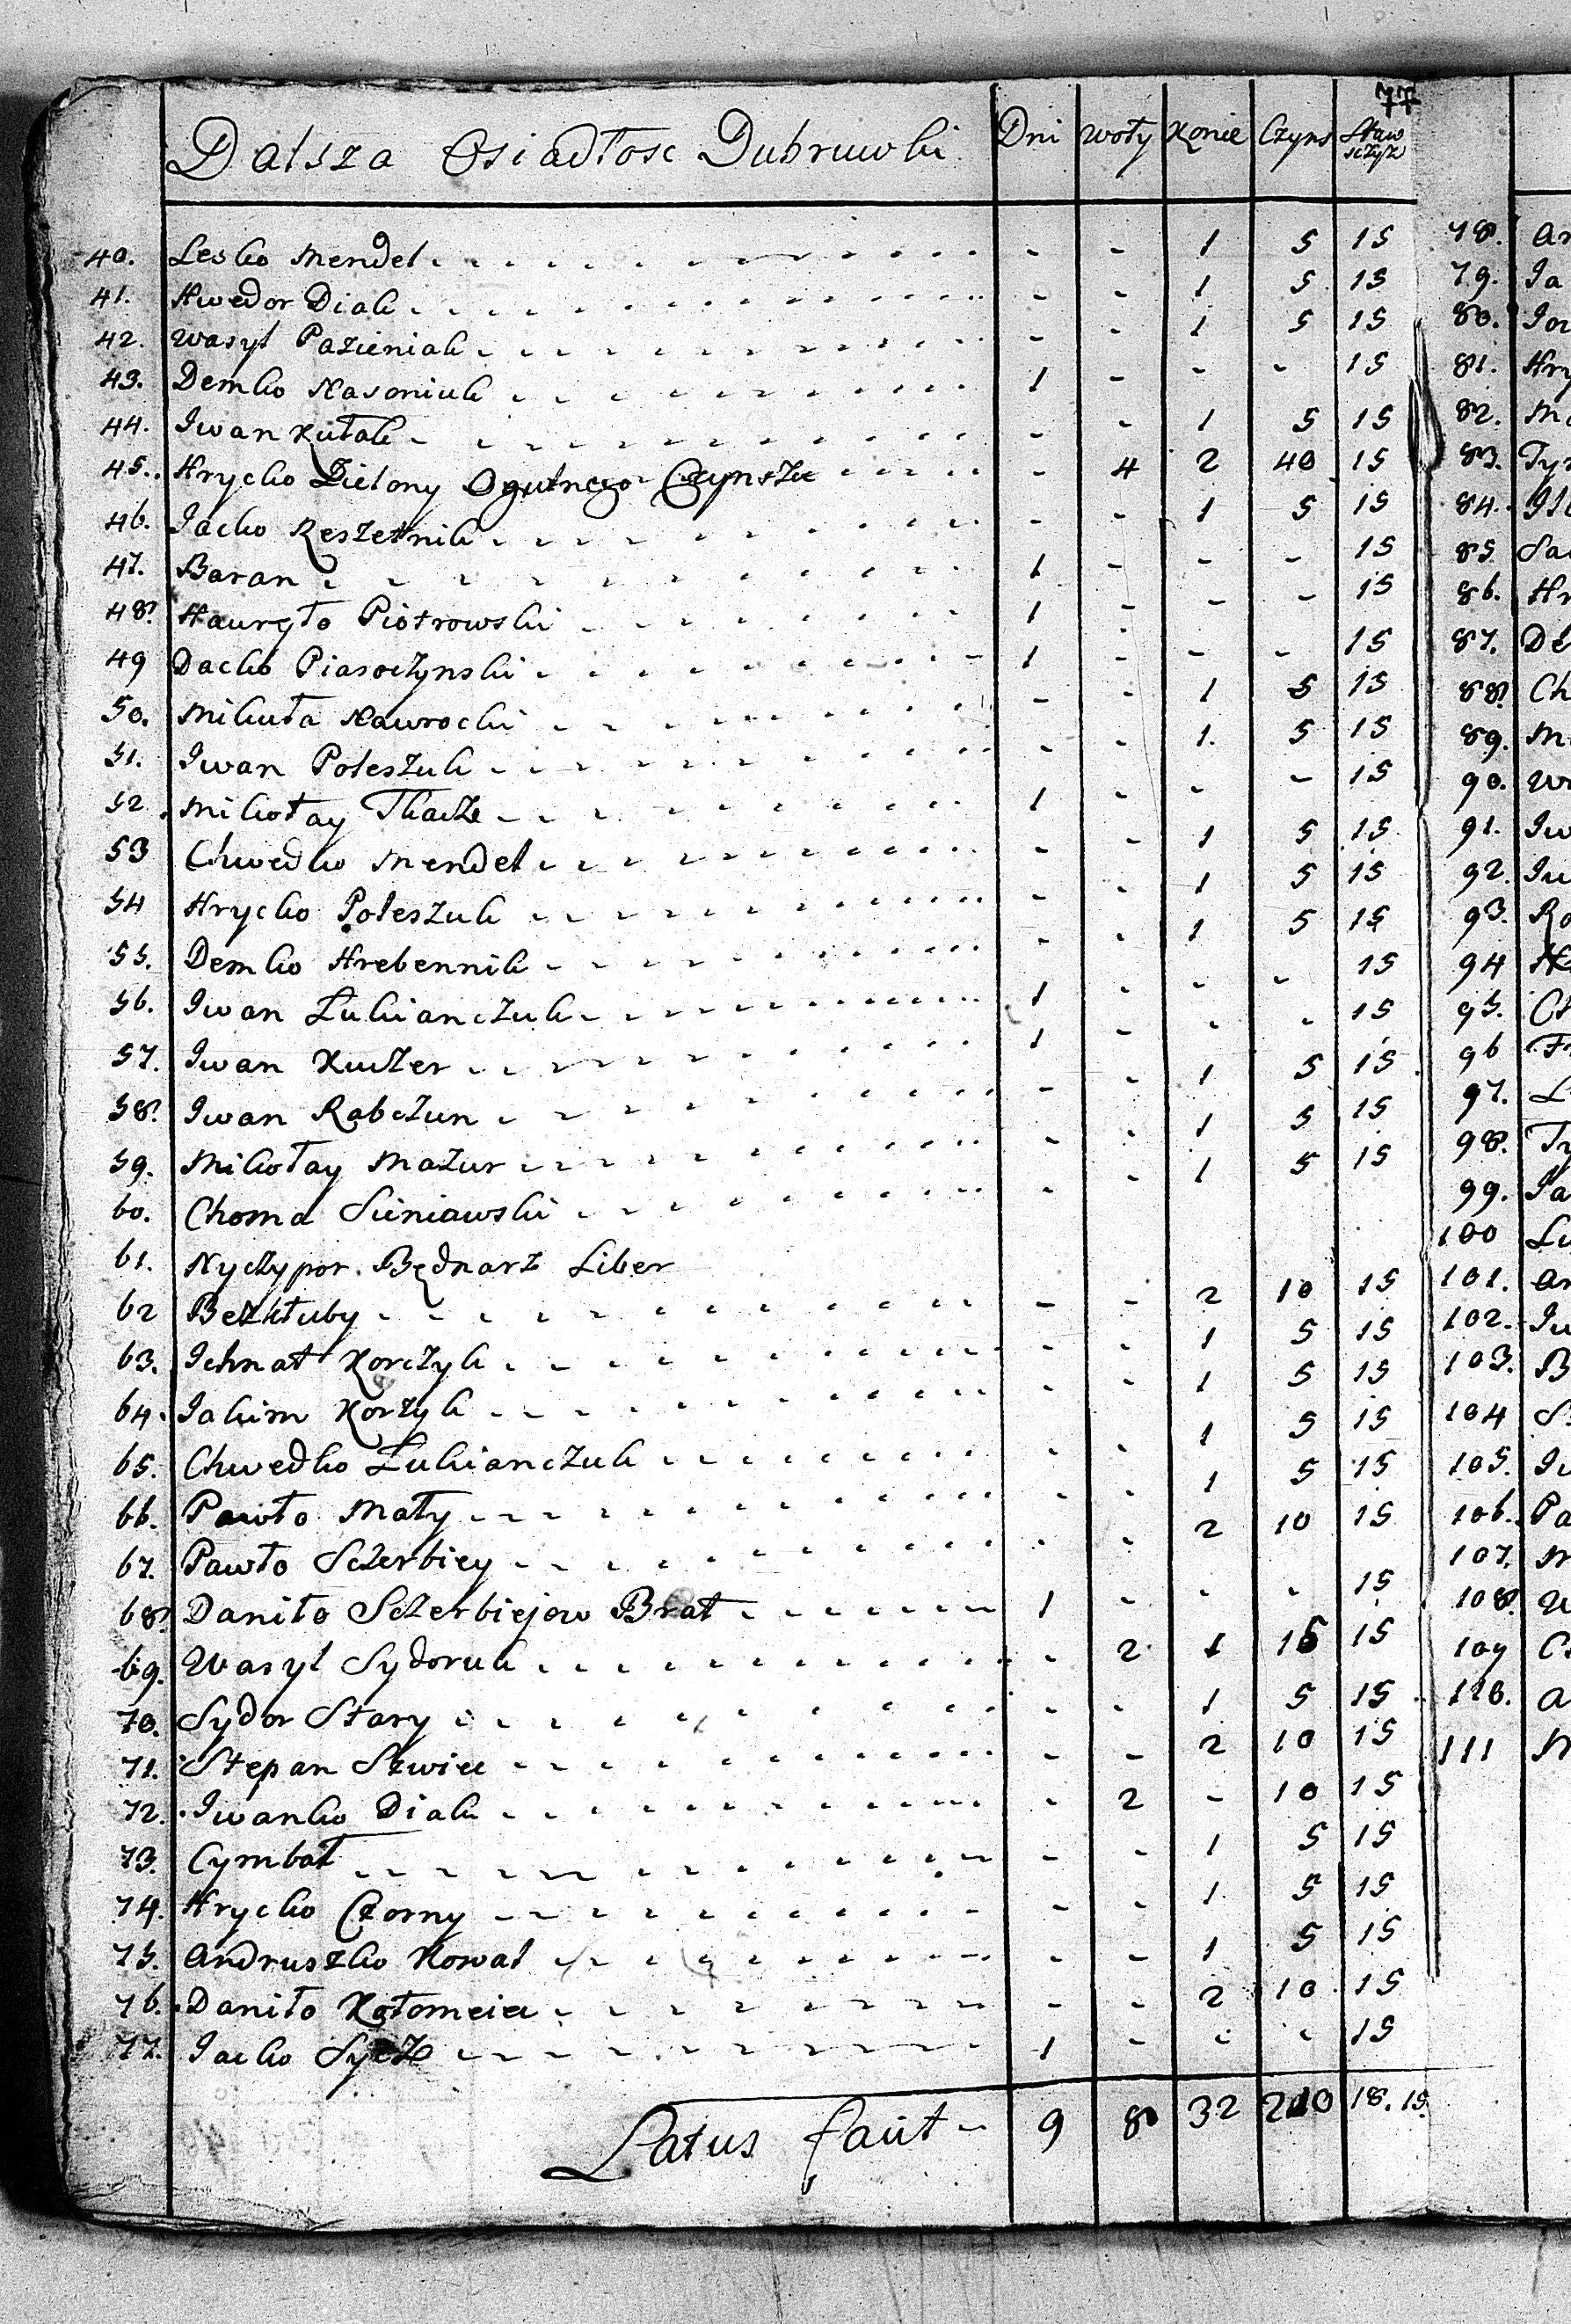 77
Dalsza Osiadłosc Dubruwki Dni Woły Konie Czyns Staw sczyz
40. Lesko Mendel - - 1 5 15
41. Hwedor Diak - - 1 5 15
42. Wasyl Pazieniak - - 1 5 15
43. Demko Kasoniuk 1 - - - 15
44. Iwan Kutak - - 1 5 15
45. Hrycko Zielony Ogulnego Czynszu - 4 2 40 15
46. Jacko Reszetnik - - 1 5 15
47. Baran 1 - - - 15
48. Hauryło Piotrowski 1 - - - 15
49 Dacko Piasoczynski 1 - - - 15
50. Mikuła Nawrocki - - 1 5 15
51. Iwan Poleszuk - - 1. 5 15
52 Mikołay Tkacz 1 - - - 15
53 Chwedko Mendel - - 1 5 15
54 Hrycko Poleszuk - - 1 5 15
55. Demko Hrebennik - - 1 5 15
56. Iwan Łukianczuk 1 - - - 15
57. Iwan Kuczer 1 - - - 15
58. Iwan Rabczun - - 1 5 15
59. Mikołay Mazur - - 1 5 15
60. Choma Sieniawski - - 1 5 15
61. Nyczypor Bednarz Liber
62 Bezkłuby - - 2 10 15
63. Jchnat Korczyk - - 1 5 15
64. Jakim Korzyk - - 1 5 15
65. Chwedko Łukianczuk - - 1 5 15
66. Pawło Mały - - 1 5 15
67. Pawło Sczerbiey - - 2 10 15
68. Daniło Sczerbiejow Brat 1 - - - 15
69. Wasyl Sydoruk - 2 1 15 15
70. Sydor Stary - - 1 5 15
71. Stepan Szwiec - - 2 10 15
72. Iwanko Diak - 2 - 10 15
73. Cymbał - - 1 5 15
74. Hrycko Czorny - - 1 5 15
75. Andruszko Kowal - - 1 5 15
76. Daniło Kołomeiec - - 2 10 15
77. Jacko Sycz 1 - - - 15
Latus facit 9 8 32 210 18. 15.
78. An
79. Ja
80.
81. Hry
82. Ma
83. Tym
84.
85
86. Hr
87. De
88. Ch
89. M
90. Wa
91. Iw
92. Iw
93. Ro
94
95. Ch
96
97.
98. Ty
99. Ja
100 Lu
101. An
102. Iw
103. B
104
105. Iw
106. Pa
107. M
108. W
109
110. A
111